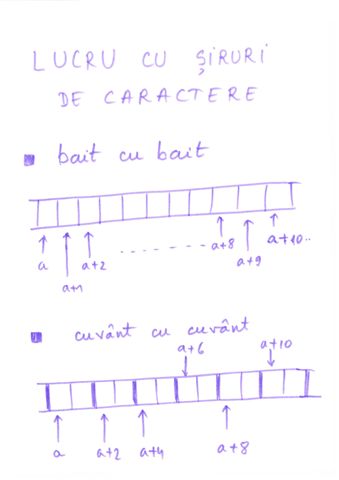 LUCRU CU ȘIRURI
DE CARACTERE
bait cu bait
a a+1 a+2 a+8 a+9 a+10..
cuvânt cu cuvânt
a+6 a+10
a a+2 a+4 a+8